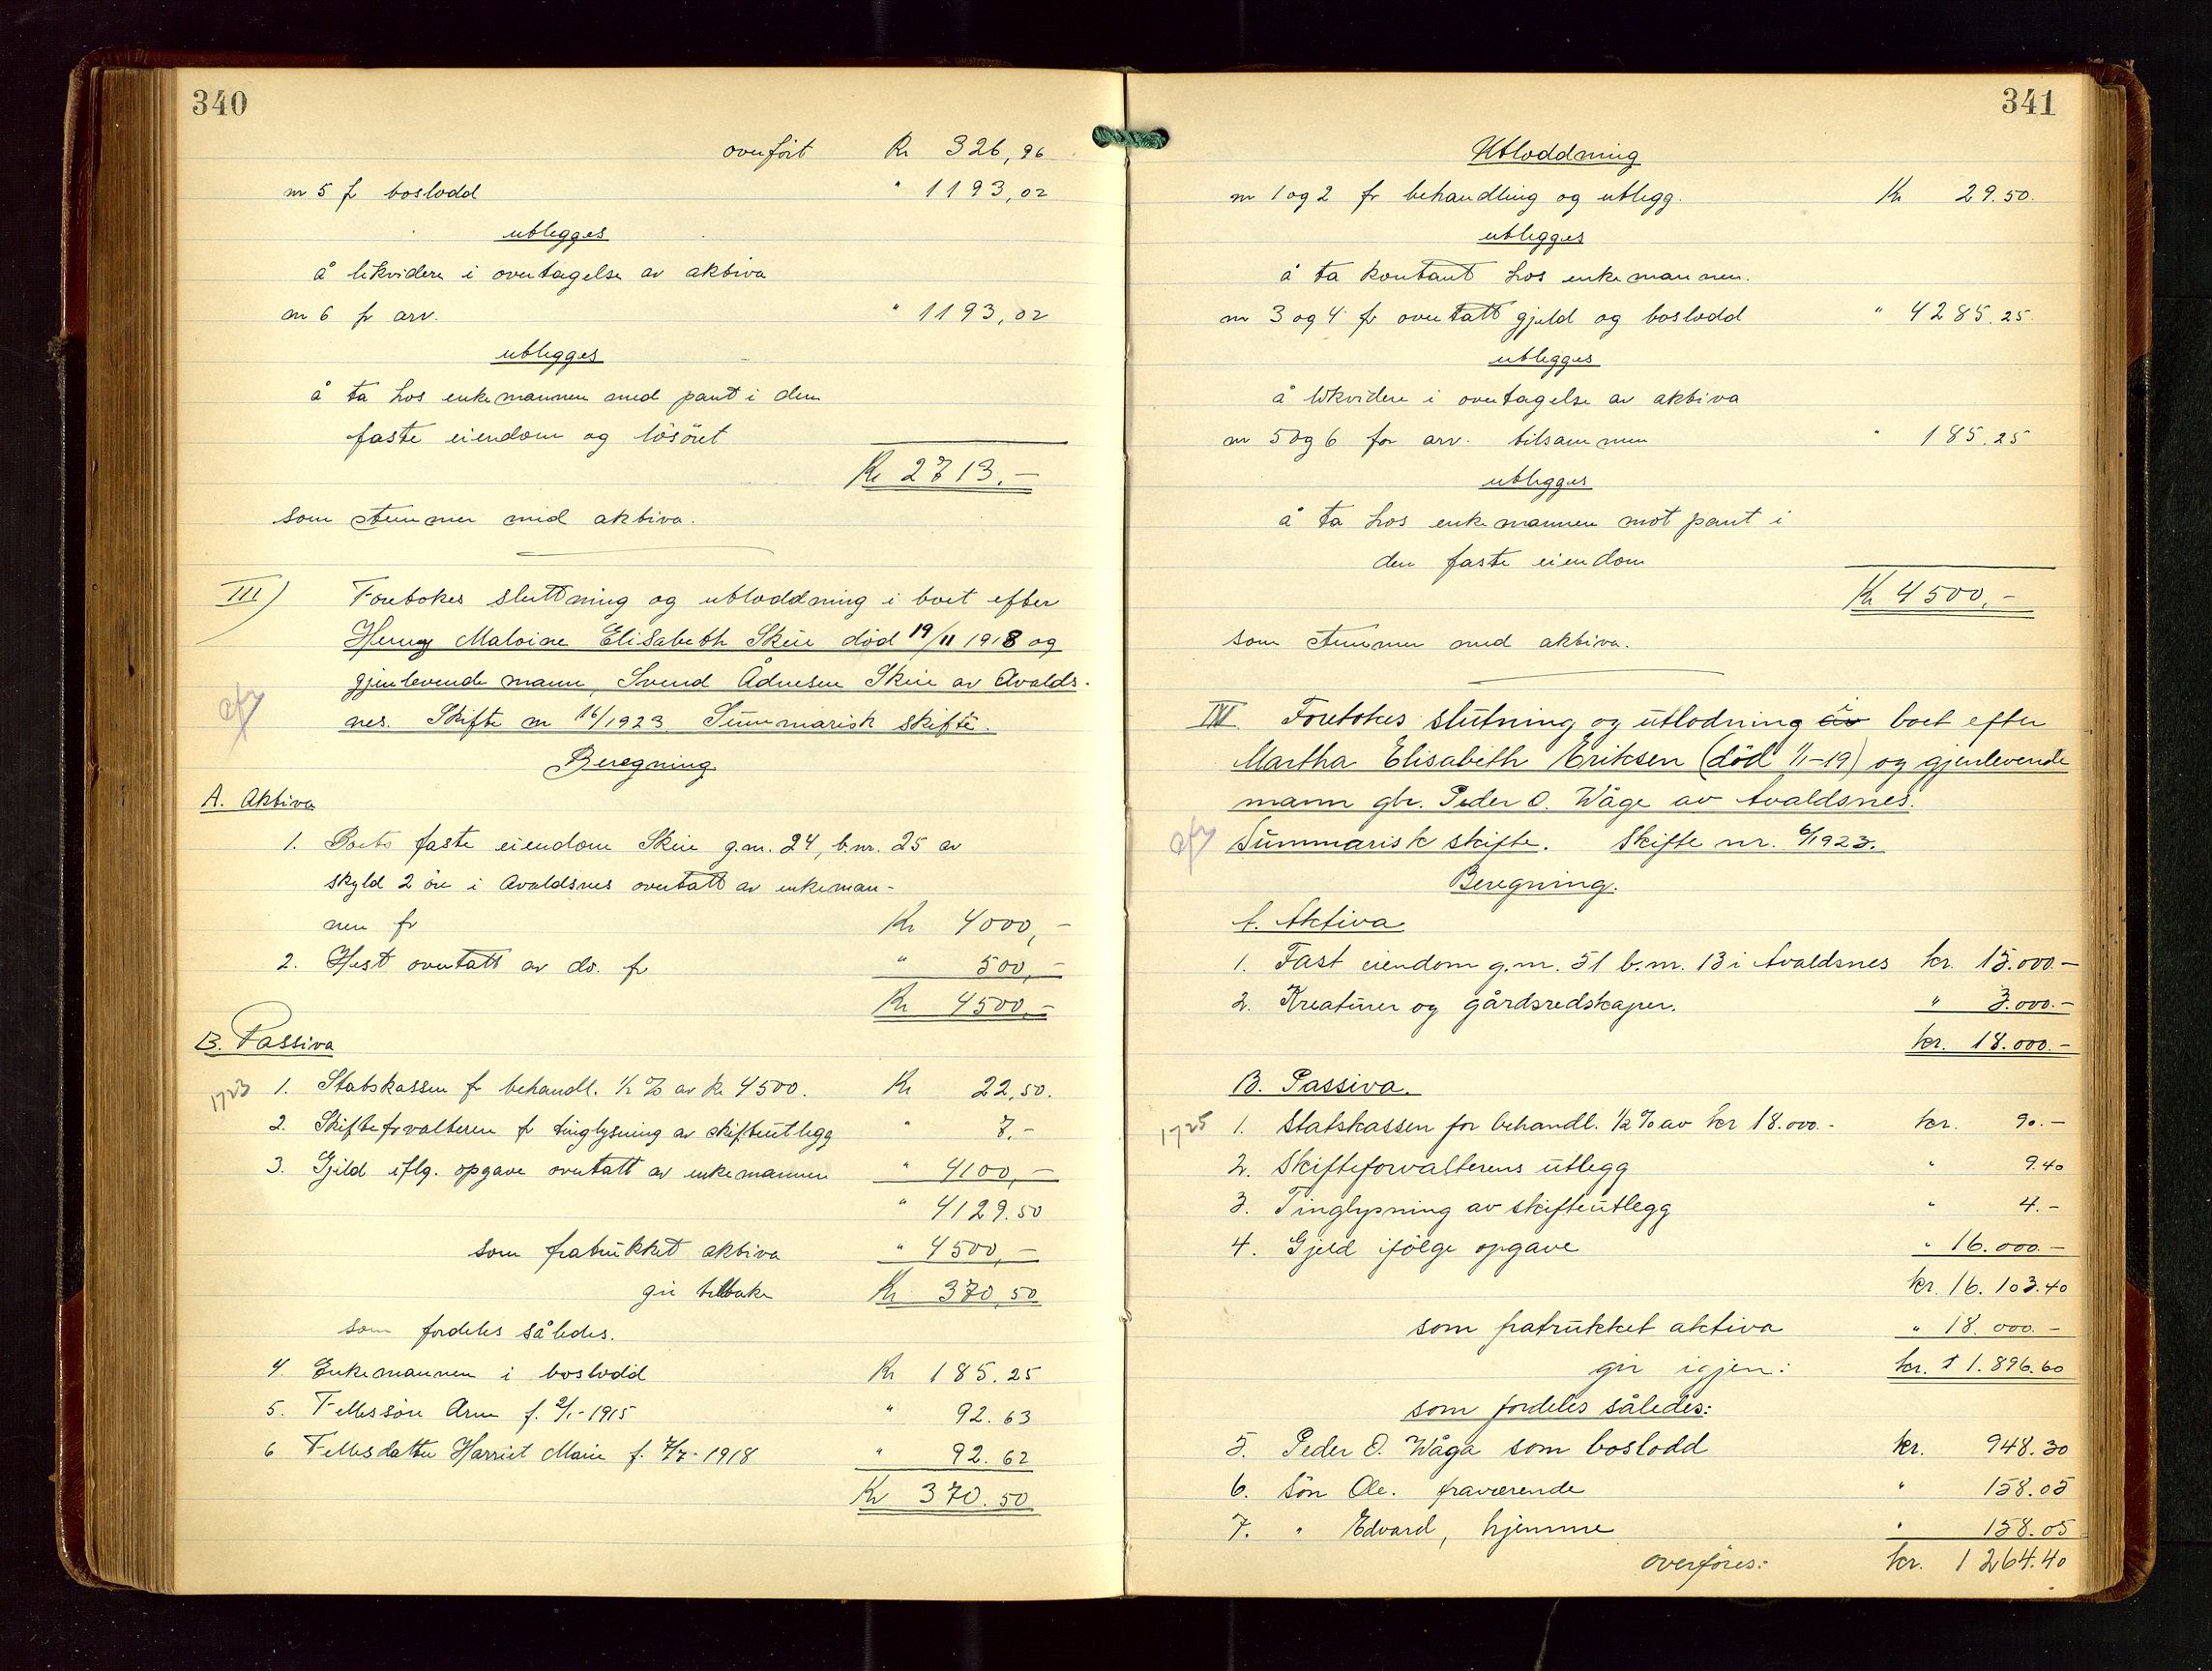 340
overført Kr 326,96
nr 5 f boslodd " 1193,02
utlegges
å likvidere i overtagelse av aktiva
nr 6 fr arv. " 1193,02
utlegges
å ta hos enkemannen med pant i den
faste eiendom og lösöret
Kr 2713.-
som stemmer med aktiva.
III) Foretokes sluttning og utloddning i boet efter
Malvine Elisabeth Skeie död 19/11 1918 og
gjenlevende mann, Svend Ådnesen Skeie av Avalds-
nes. Skifte nr 16/1923. Summarisk skifte.
Beregning
A. Aktiva
1. Boets faste eiendom Skeie g.nr. 24, b.nr. 25 av
skyld 2 öre i Avaldsnes overtatt av enkeman-
nen fr Kr 4000,-
2. Hest overtatt av do. fr " 500,-
Kr 4500,-
B. Passiva
1723 1. Statskassen fr behandl. 1/2 % av kr 4500. Kr 22,50.
2. Skifteforvalteren fr tinglysning av skifteutlegg " 7.-
3. Gjeld iflg. opgave overtatt av enkemannen " 4100,-
" 4129.50
som fratrukket aktiva " 4500,-
gir tilbake Kr 370,50
som fordeles således.
4. Enkemannen i boslodd Kr 185.25
5. Fellessön Arne f. 2/1-1915 " 92.63
6 Fellesdatter Harriet Marie f. 7/7-1918 " 92.62
Kr 370.50
341
Utloddning
nr 1 og 2 fr behandling og utlegg. Kr 29.50.
utlegges
å ta kontant hos enkemannen.
nr 3 og 4 fr overtatt gjeld og boslodd " 4285.25.
utlegges
å likvidere i overtagelse av aktiva
nr 5 og 6 for arv. tilsammen " 185.25
utlegges
å ta hos enkemannen mot pant i
den faste eiendom
Kr 4500,-
som stemmer med aktiva.
IV Foretokes slutning og utlodning av i boet efter
Martha Elisabeth Eriksen (död 1/1-19) og gjenlevende
mann gbr. Peder O. Wåge av Avaldsnes.
Summarisk skifte. Skifte nr. 6/1923.
Beregning.
A. Aktiva
1. Fast eiendom g.nr. 51 b.nr. 13 i Avaldsnes kr. 15.000.-
2. Kreaturer og gårdsredskaper. " 3.000.-
kr. 18.000.-
B. Passiva.
1725 1. Statskassen for behandl. 1/2 % av kr 18.000.- kr. 90.-
2. Skifteforvalterens utlegg " 9.40
3. Tinglysning av skifteutlegg " 4.-
4. Gjeld ifölge opgave " 16.000.-
kr. 16.103.40
som fratrukket aktiva " 18.000.-
gir igjen: kr. 1.896.60
som fordeles således:
5. Peder O. Wåga som boslodd kr. 948.30
6. Sön Ole. fraværende " 158.05
7. " Edvard, hjemme " 158.05
overføres: kr. 1264.40